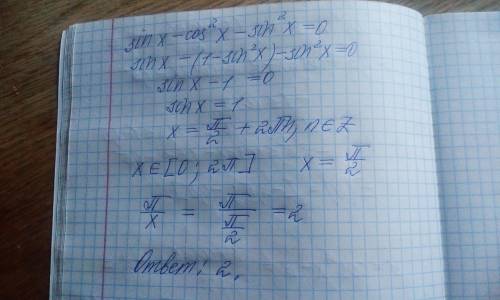 sin x - cos²x - sin²x = 0
sin x - (1 - sin²x) - sin²x = 0
sin x - 1 = 0
sin x = 1
x = π/2 + 2πn, n ∈ Z
x ∈ [0; 2π] x = π/2
π/x = π/(π/2) = 2
Ответ: 2.